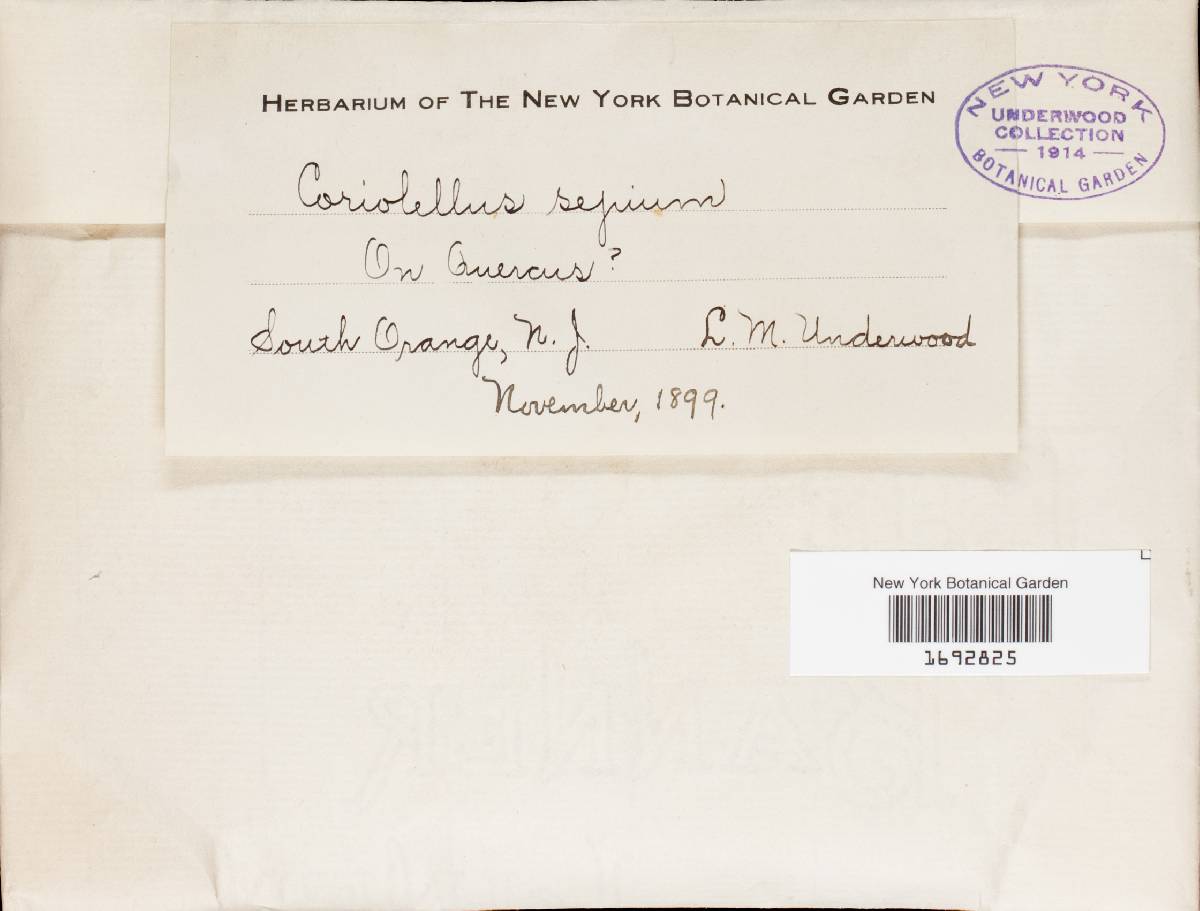 HERBARIUM OF THE NEW YORK BOTANICAL GARDEN
NEW YORK
UNDERWOOD
COLLECTION
— 1914 —
BOTANICAL GARDEN
Coriolellus sepium
On Quercus?
South Orange, N. J. L. M. Underwood
November, 1899.
New York Botanical Garden
1692825